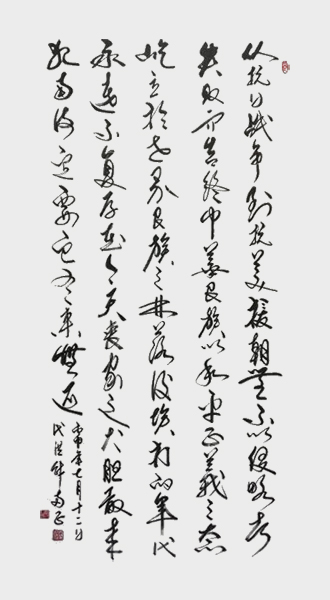 从抗日战争到抗美援朝无不以侵略者
失败而告终中华民族以和平正义之态
屹立於世界民族之林落後挨打的年代
永远不复存在今天丧家之犬胆敢来
犯南海定要它有来無返
丙申年七月十二日